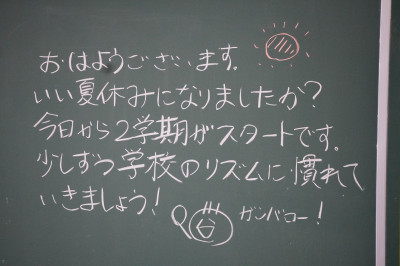 おはようございます。
いい夏休みになりましたか?
今日から2学期がスタートです。
少しずつ学校のリズムに慣れて
いきましょう!
谷
ガンバロー!